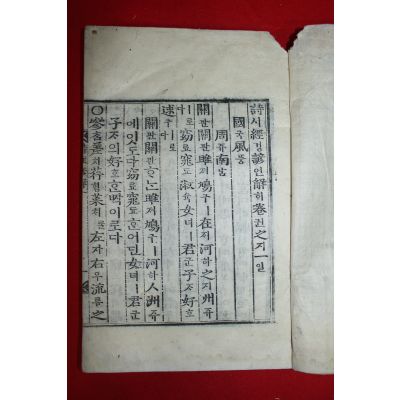 詩시經경諺언解ᄒᆡ卷권之지一일
國국風풍
周쥬南남
關관關관雎져鳩구ㅣ在ᄌᆡ河하之지洲쥬
ㅣ로다窈요窕됴淑슉女녀ㅣ君군子ᄌᆞ好호
逑구ㅣ로다
關관關관ᄒᆞᄂᆞᆫ雎져鳩구ㅣ河하人洲쥬
에잇도다窈요窕됴ᄒᆞᆫ어딘女녀ㅣ君군
子ᄌᆞ의好호ᄒᆞᆫᄧᅡᆨ이로다
○參ᄎᆞᆷ差치荇ᄒᆡᆼ菜ᄎᆡ를左자右우流류之